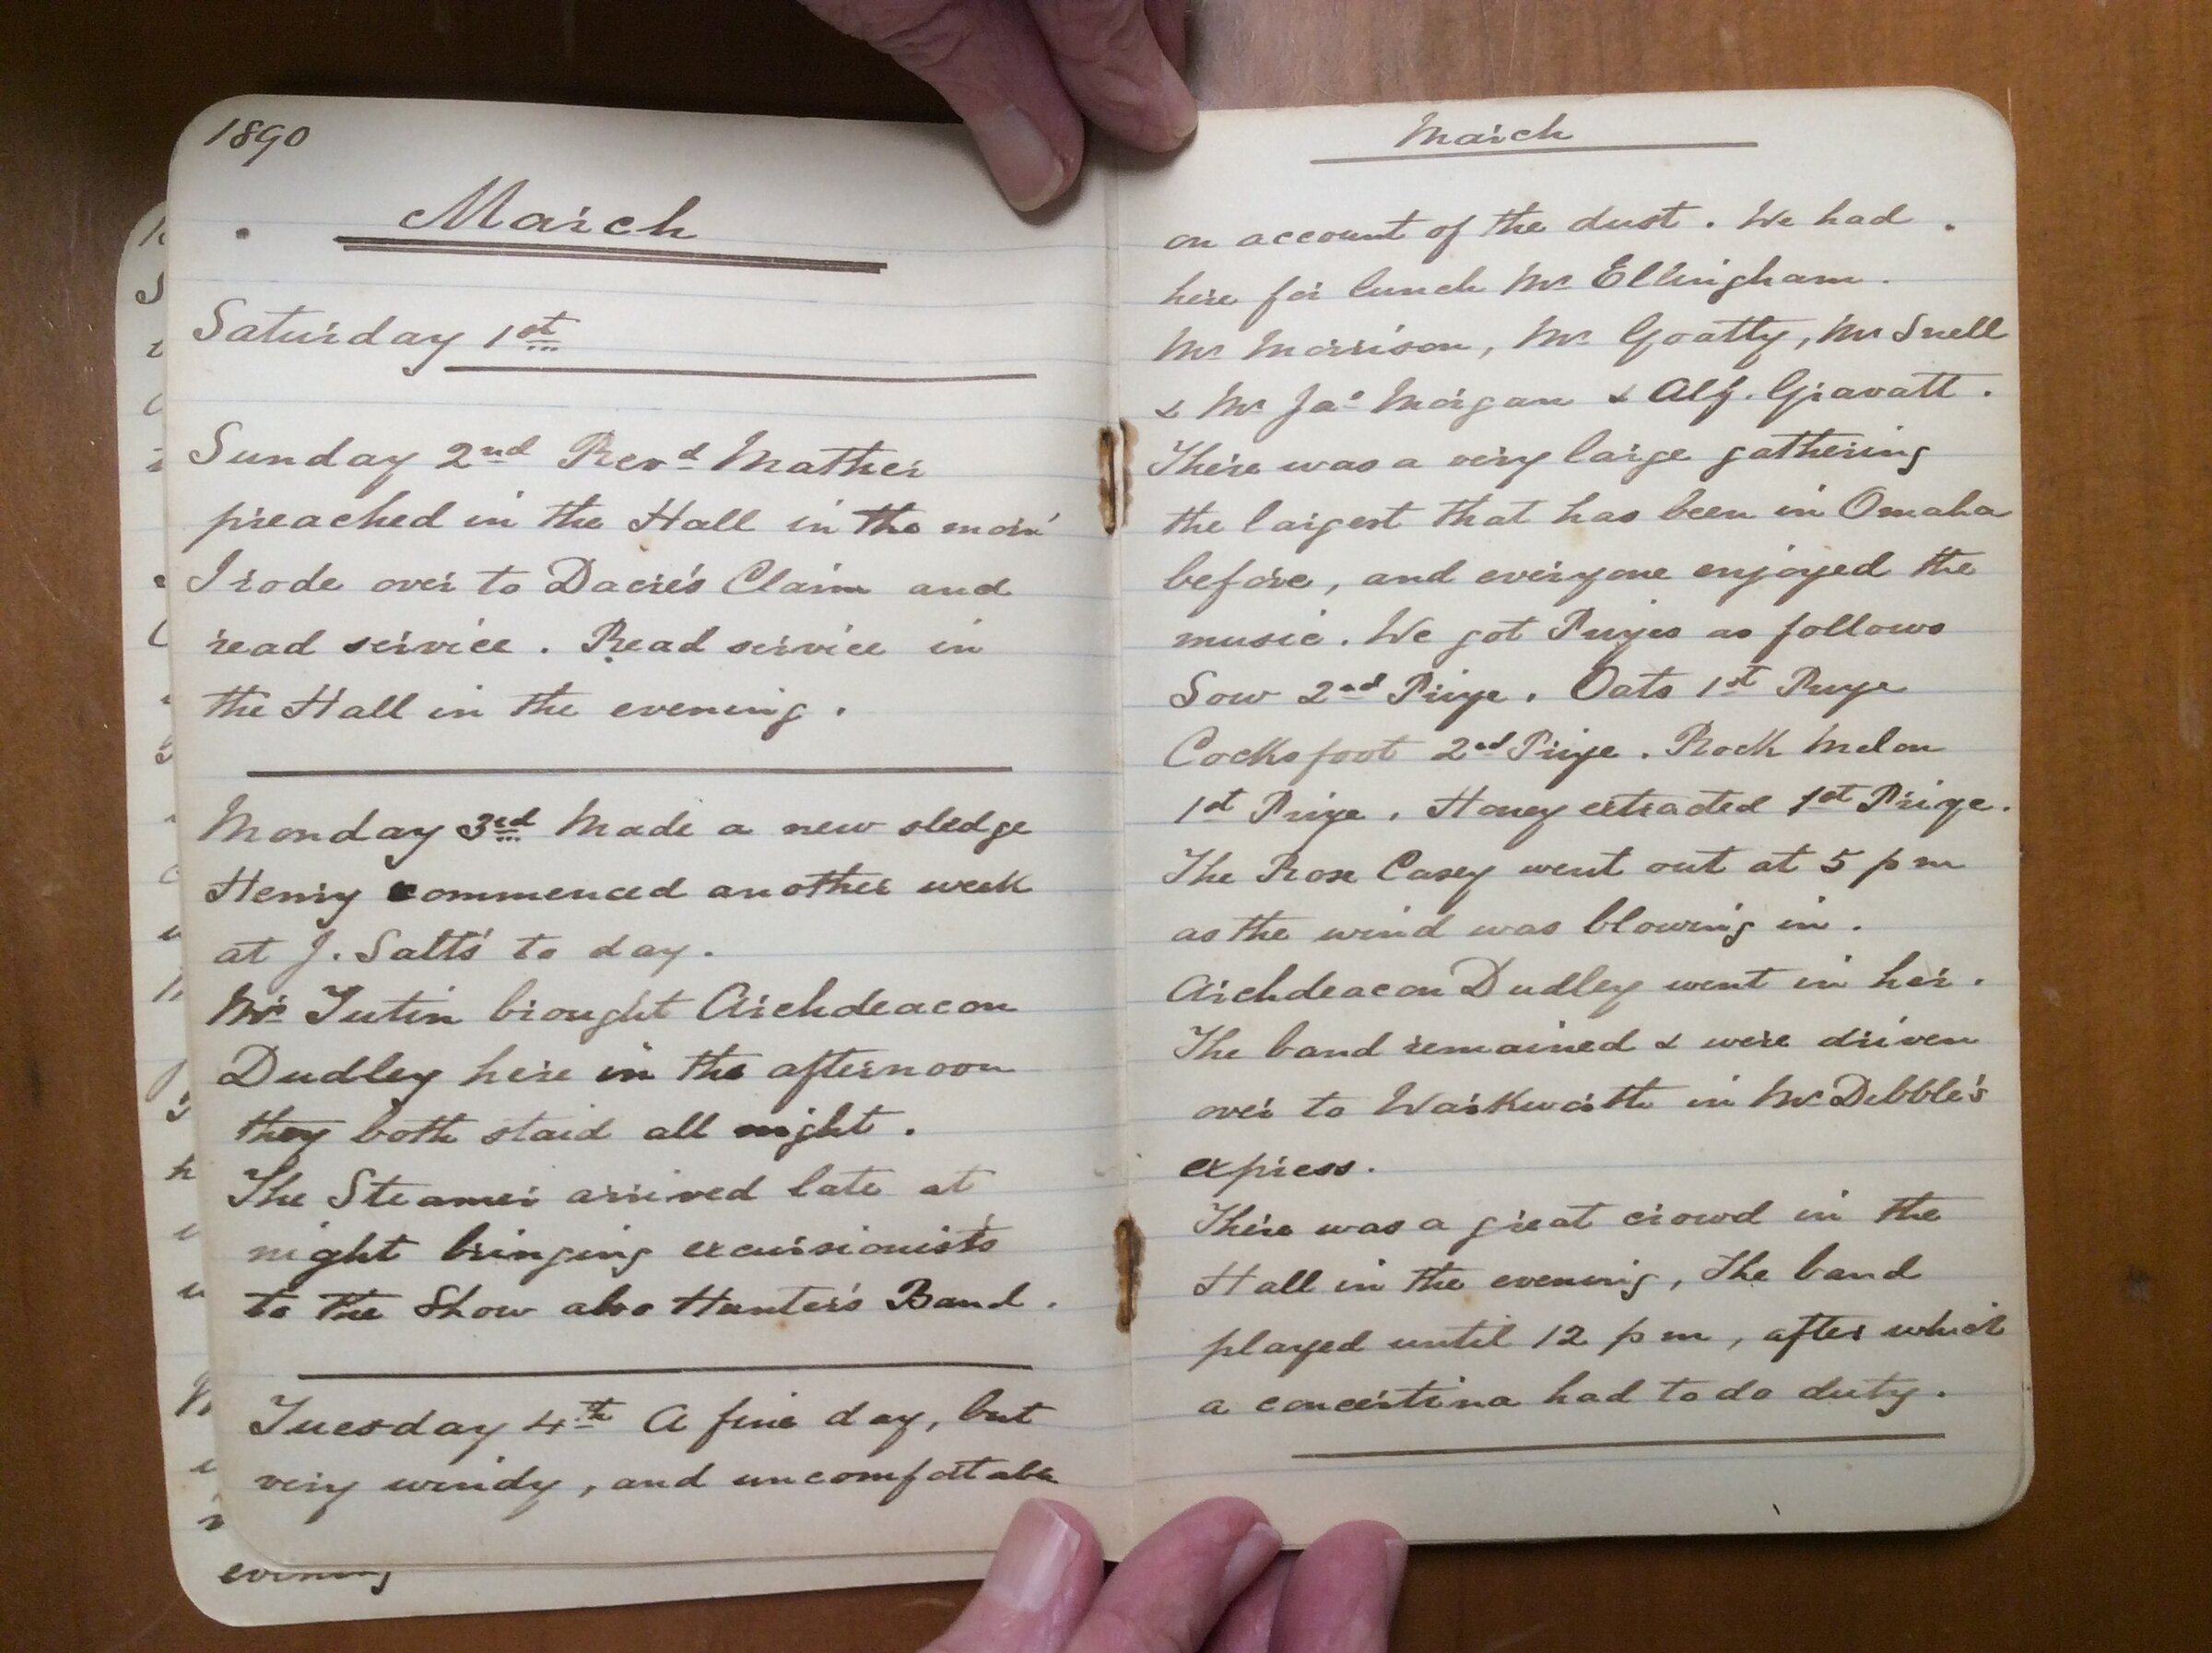 1890
March
Saturday 1st
Sunday 2nd Revd Mather
preached in the Hall in the morn'
I rode over to Dacre's Claim and
read service. Read service in
the Hall in the evening.
Monday 3rd Made a new sledge
Henry commenced another week
at J. Salts' to day.
Mr Tutin brought Archdeacon
Dudley here in the afternoon
they both staid all night.
The Steamer arrived late at
night bringing excursionists
to the Show also Hunter's Band.
Tuesday 4th A fine day, but
very windy, and uncomfortable
evening
March
on account of the dust. We had
here for lunch Mr Ellingham.
Mr Morrison, Mr Goatty, Mr Snell
& Mr Jas Morgan & Alf. Gravatt.
There was a very large gathering
the largest that has been in Omaha
before, and everyone enjoyed the
music. We got Prizes as follows
Sow 2nd Prize. Oats 1st Prize
Cocksfoot 2nd Prize. Rock Melon
1st Prize. Honey extracted 1st Prize.
The Rose Casey went out at 5 pm
as the wind was blowing in.
Archdeacon Dudley went in her.
The band remained & were driven
over to Warkworth in Mr Dibble's
express.
There was a great crowd in the
Hall in the evening, The band
played until 12 pm, after which
a concertina had to do duty.